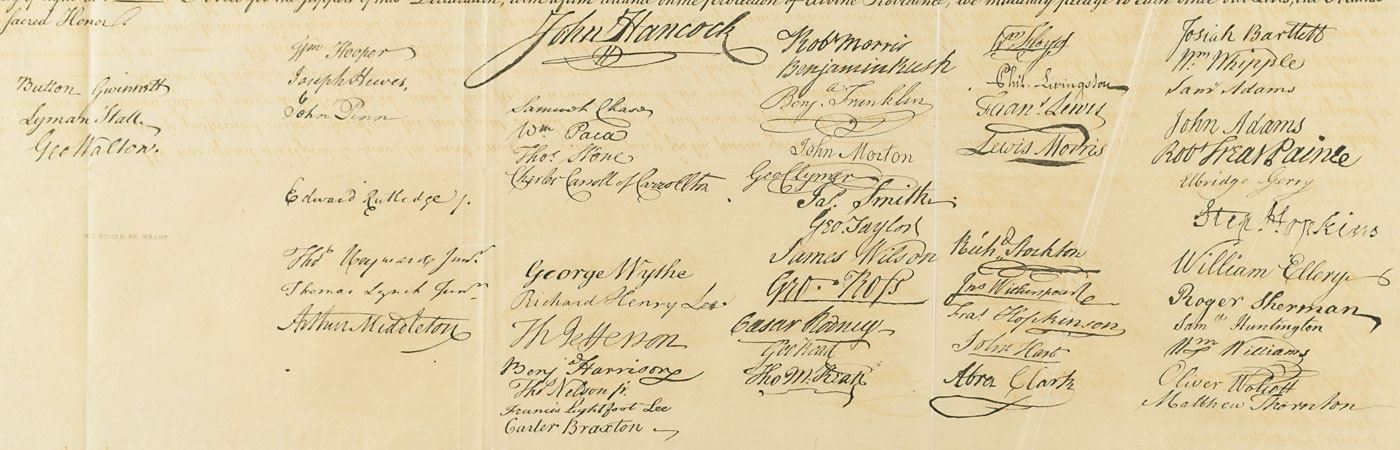 for the support of this Declaration, with a firm reliance on the protection of divine Providence, we mutually pledge to each other our Lives, our Fortunes
sacred Honor.
Button Gwinnett
Lyman Hall.
Geo Walton.
Wm Hooper
Joseph Hewes,
John Penn
Edward Rutledge /.
Thos Heyward Junr.
Thomas Lynch Junr.
Arthur Middleton
John Hancock
Samuel Chase
Wm Paca
Thos Stone
Charles Carroll of Carrollton
George Wythe
Richard Henry Lee
Th Jefferson
Benja Harrison
Thos Nelson jr.
Francis Lightfoot Lee
Carter Braxton
Robt Morris
Benjamin Rush
Benja Franklin
John Morton
Geo Clymer
Jas. Smith
Geo. Taylor
James Wilson
Geo. Ross
Caesar Rodney
Geo Read
Tho M:Kean
Wm Floyd
Phil. Livingston
Frans. Lewis
Lewis Morris
Richd Stockton
Jno Witherspoon
Fras. Hopkinson
John Hart
Abra Clark
Josiah Bartlett
Wm Whipple
Saml Adams
John Adams
Robt Treat Paine
Elbridge Gerry
Step. Hopkins
William Ellery
Roger Sherman
Saml Huntington
Wm Williams
Oliver Wolcott
Matthew Thornton